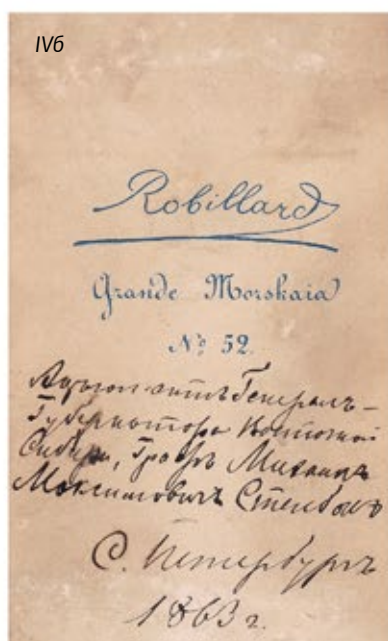 IV6
Robillard
Grande Morskaia
№ 52.
Адъютантъ Генералъ-
Губернатора Восточной
Сибири, Графъ Михаилъ
Максимовичъ Стенбокъ
С. Петербургъ
1863 г.